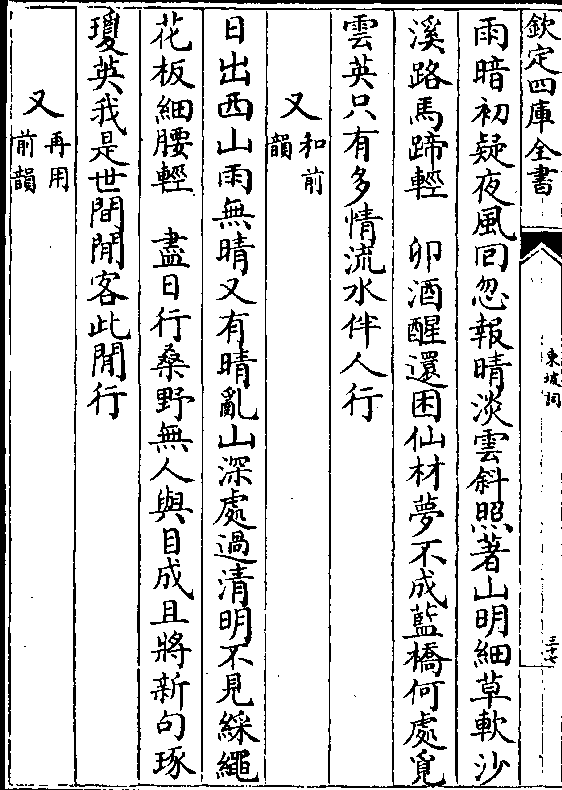 欽定四庫全書
東坡詞
三十七
雨暗初疑夜風囘忽報晴淡雲斜照著山明細草軟沙
溪路馬蹄輕　卯酒醒還困仙材夢不成藍橋何處覓
雲英只有多情流水伴人行
又和前韻
日出西山雨無晴又有晴亂山深處過清明不見綵繩
花板細腰輕　盡日行桑野無人與目成且將新句琢
瓊英我是世間閒客此閒行
又再用前韻